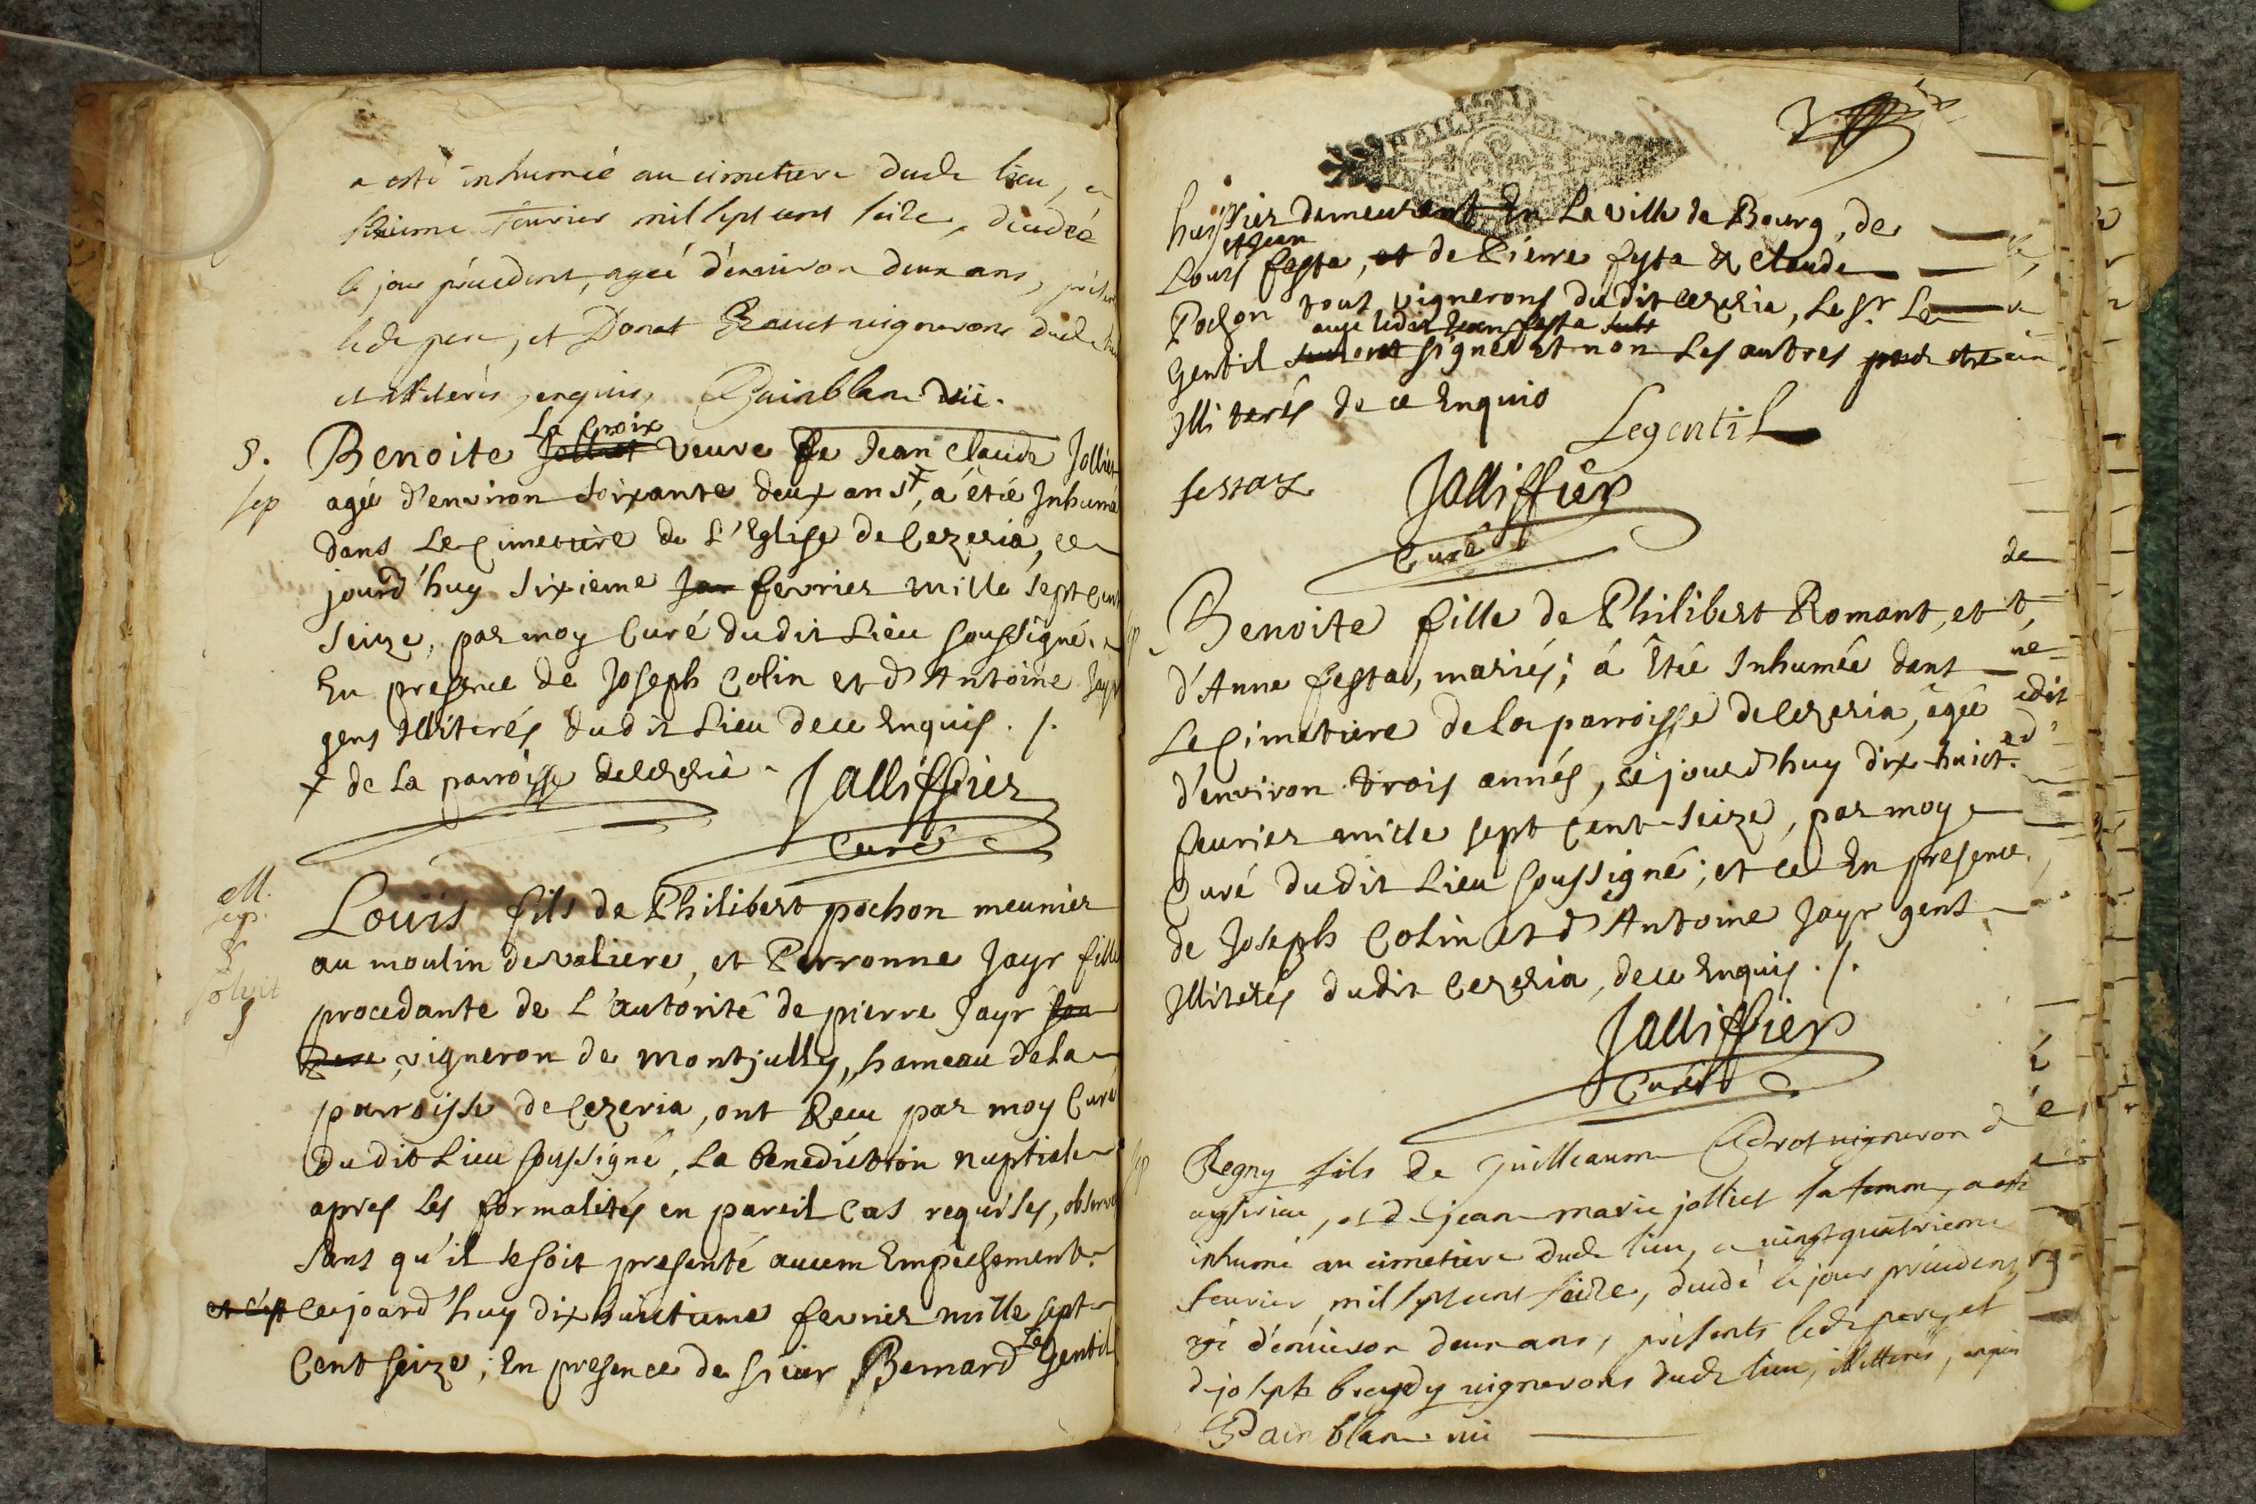 a esté inhumée au cimetiere dudt lieu, ce
fevrier mil sept cent seize, decedée
le jour précedent, agée d'environ deux ans, présents
ledt pere, et Donat vignerons dudt lieu
et illiterés, enquis, Painblanc vic.
8. Benoite Jolliet La Croix veuve de Jean Claude Jolliet
sep agée d'environ soixante deux ans +, a étée Inhumée
dans Le Cimetiere de L'Eglise de Cezeria, ce
jourd'huy sixieme Jan fevrier mille sept cent
seize, par moy Curé dudit Lieu soussigné.
En presence de Joseph Colin et d'Antoine Jayr
gens Illiterés dudit Lieu de ce Enquis. /.
+ de La parroisse de Cezeria
Jalliffier
Curé
M.
Louis fils de Philibert pochon meunier
au moulin de valiere, et Perronne Jayr fille
solvit
procedante de L'autórité de pierre Jayr son
pere, vigneron de Montjully, hameau de la
parroisse de Cezeria, ont Receu par moy Curé
dudit Lieu soussigné, La Benediction nuptiale
apres Les formalités en pareil Cas requises, observées
sans qu'il se soit presenté aucun Empechement.
et c'est Ce jourd'huy dix huictieme fevrier mille sept
Cent seize; En presence de sieur Bernard Le Gentil
huissier demeurant En La ville de Bourg, de
et Jean
Louis festa, et de Pierre festa & Claude
Pochon tous vignerons dudit Cezeria, Le Sr. Le
avec ledit Jean festa
Gentil signés et non Les autres
Illiterés de ce Enquis
Legentil
fessaz
Jalliffier
Curé
Benoite fille de Philibert Romant, et
d'Anne festa, mariés; á Étée Inhumée dans
Le Cimetiere de la parroisse de Cezeria, agée
d'environ trois annés, ce jourd'huy dix huict.
feurier mille sept Cent seize, par moy
Curé dudit Lieu soussigné; et ce En presence
de Joseph Colin et d'Antoine Jayr gens
Illiterés dudit Cezeria, de ce Enquis. /.
Jalliffier
Curé
sep Regny fils de Guilleaume vigneron
, et de jeane marie jolliet sa femme, a esté
inhumé au cimetiere dudt lieu, ce vingt quatrieme
feurier, mil sept cent seize, decedé le jour précedent,
agé d'environ deux ans, présents ledt pere, et
joseph vignerons dudt lieu, illitteres, enquis
Painblanc vic